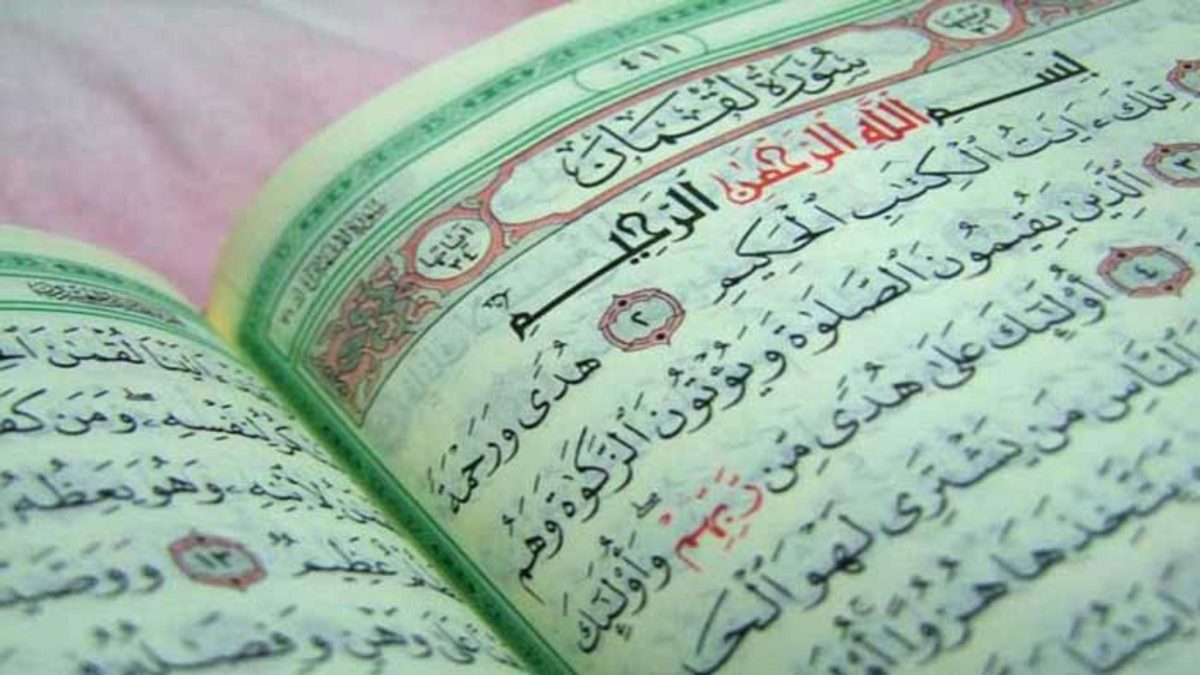 ٤١١
سُورَةُ لُقْمَانَ
آياتها ٣٤
بِسْمِ ٱللَّهِ ٱلرَّحْمَٰنِ ٱلرَّحِيمِ
تِلْكَ ءَايَٰتُ ٱلْكِتَٰبِ ٱلْحَكِيمِ ٢ هُدًى وَرَحْمَةً
٣ ٱلَّذِينَ يُقِيمُونَ ٱلصَّلَوٰةَ وَيُؤْتُونَ ٱلزَّكَوٰةَ وَهُم
٤ أُو۟لَٰٓئِكَ عَلَىٰ هُدًى مِّن رَّبِّهِمْ ۖ وَأُو۟لَٰٓئِكَ
ٱلنَّاسِ مَن يَشْتَرِى لَهْوَ ٱلْحَ
يَتَّخِذَهَا هُزُوًا أُو۟
ءَايَٰتُنَا
ءَاتَيْنَا لُقْمَٰنَ
لِنَفْسِهِۦ ۖ وَمَن كَفَ
لِٱبْنِهِۦ وَهُوَ يَعِظُهُۥ
عَظِيمٌ ١٣ وَوَصَّيْ
عَلَىٰ وَهْنٍ وَفِصَٰلُ